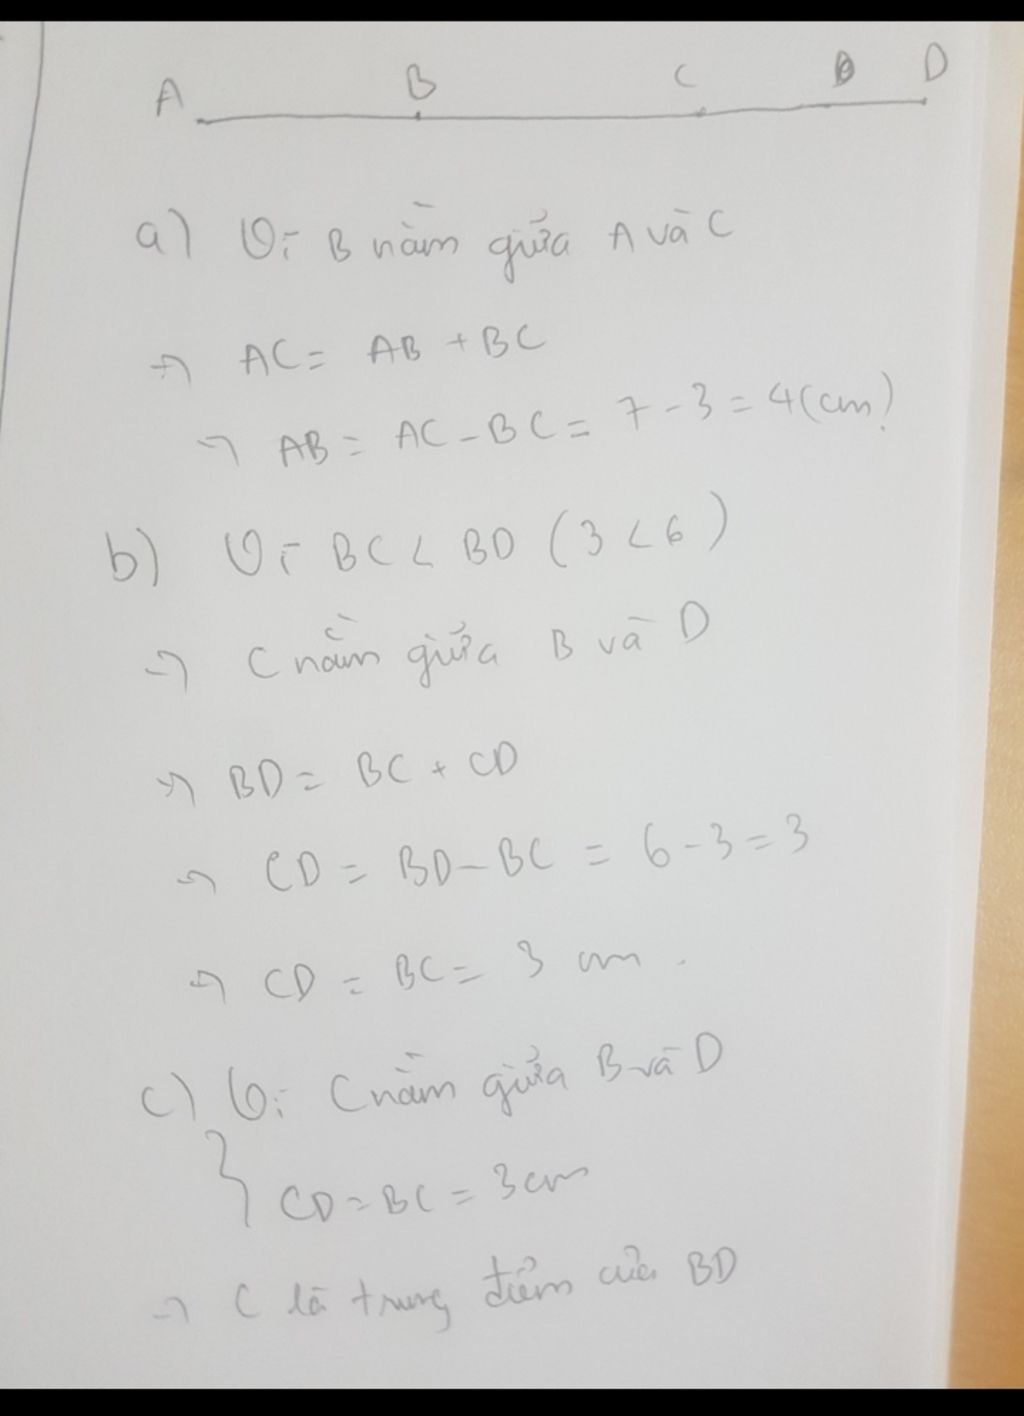 A B C D
a) Vì B nằm giữa A và C
→ AC = AB + BC
→ AB = AC - BC = 7 - 3 = 4 (cm)
b) Vì BC < BD (3 < 6)
→ C nằm giữa B và D
→ BD = BC + CD
→ CD = BD - BC = 6 - 3 = 3
→ CD = BC = 3 cm.
c) Vì C nằm giữa B và D
} CD = BC = 3cm
→ C là trung điểm của BD